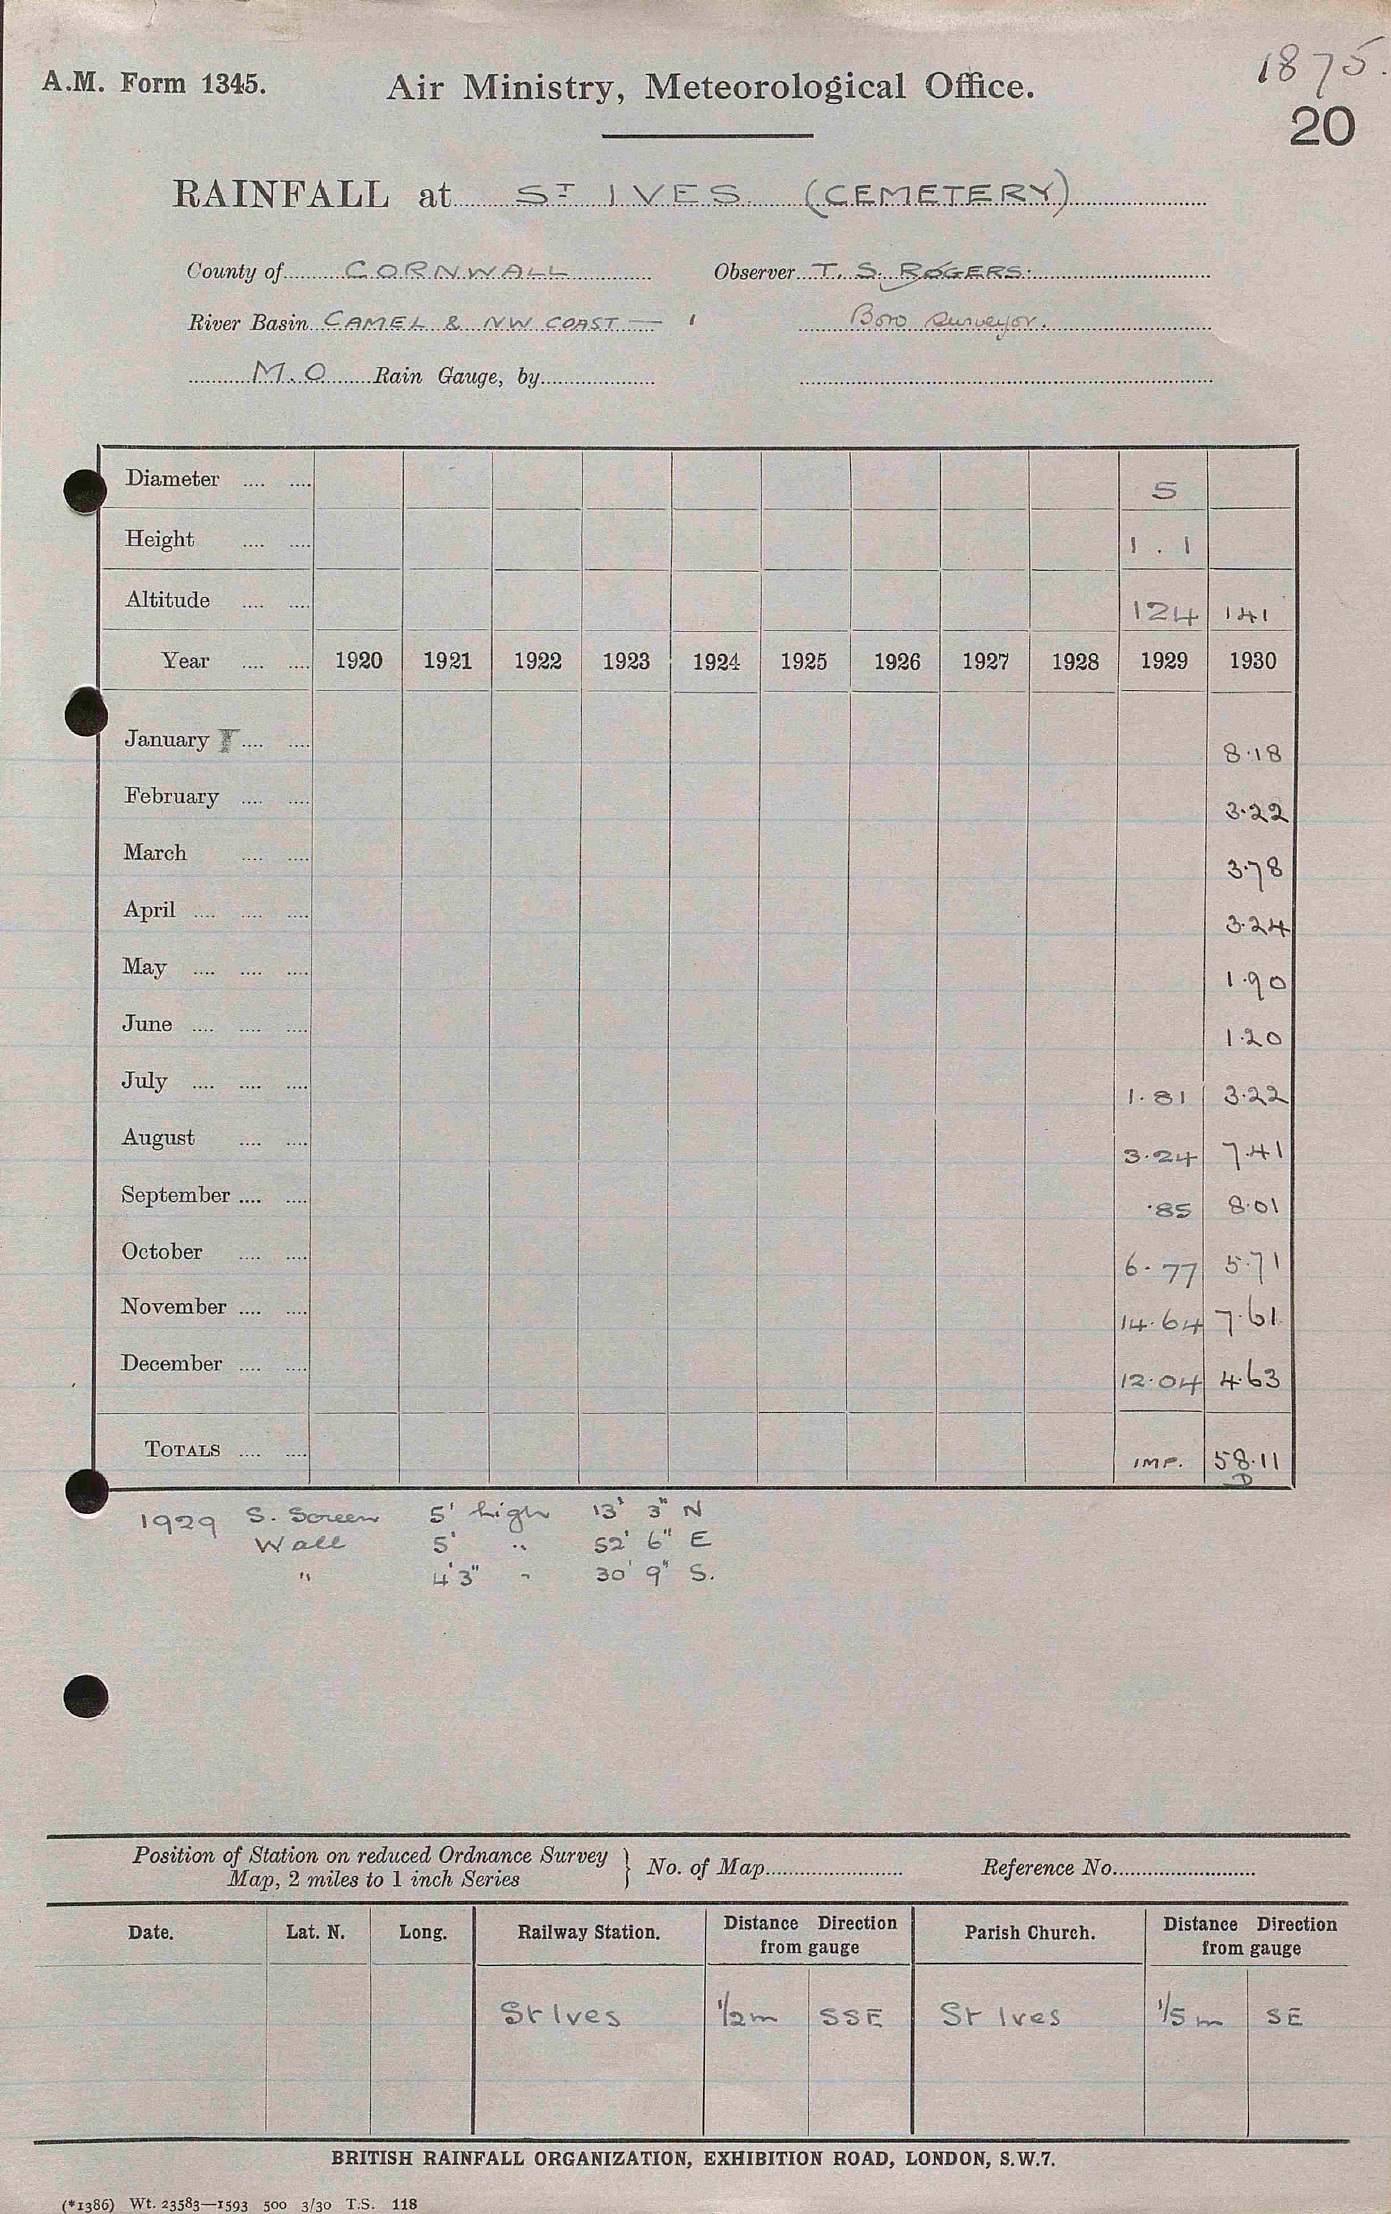 1875.
A.M. Form 1345. Air Ministry, Meteorological Office.
20
RAINFALL at ST IVES (CEMETERY)
County of CORNWALL Observer T. S. ROGERS.
River Basin CAMEL & NW COAST — Boro Surveyor.
M.O Rain Gauge, by
Diameter .... .... 5
Height .... .... 1 . 1
Altitude .... .... 124 141
Year .... .... 1920 1921 1922 1923 1924 1925 1926 1927 1928 1929 1930
January T .... .... 8.18
February .... .... 3.22
March .... .... 3.78
April .... .... .... 3.24
May .... .... .... 1.90
June .... .... .... 1.20
July .... .... .... 1.81 3.22
August .... .... 3.24 7.41
September .... .... .85 8.01
October .... .... 6.77 5.71
November .... .... 14.64 7.61
December .... .... 12.04 4.63
TOTALS .... .... IMP. 58.11
D
1929 S. Screen 5' high 13' 3" N
Wall 5' " 52' 6" E
" 4'3" " 30' 9" S.
Position of Station on reduced Ordnance Survey
Map, 2 miles to 1 inch Series } No. of Map Reference No.
Date. Lat. N. Long. Railway Station. Distance Direction from gauge Parish Church. Distance Direction from gauge
St Ives 1/2 m SSE St Ives 1/5 m SE
BRITISH RAINFALL ORGANIZATION, EXHIBITION ROAD, LONDON, S.W.7.
(*1386) Wt. 23583—1593 500 3/30 T.S. 118